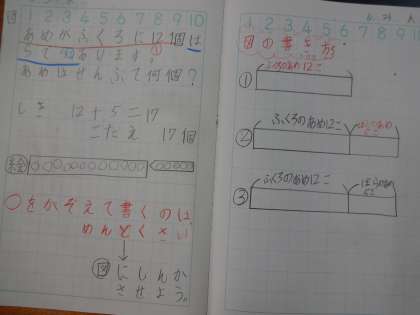 1 2 3 4 5 6 7 8 9 10
あめがふくろに12個は
あります。
あめはぜんぶで何個?
しき 12+5=17
こたえ 17個
絵
○をかぞえて書くのは、
めんどくさい
↓
図にしんか
させよう。
1 2 3 4 5 6 7 8 9 10
図の書き方
① ふくろのあめ12こ
② ふくろのあめ12こ
③ ふくろのあめ12こ